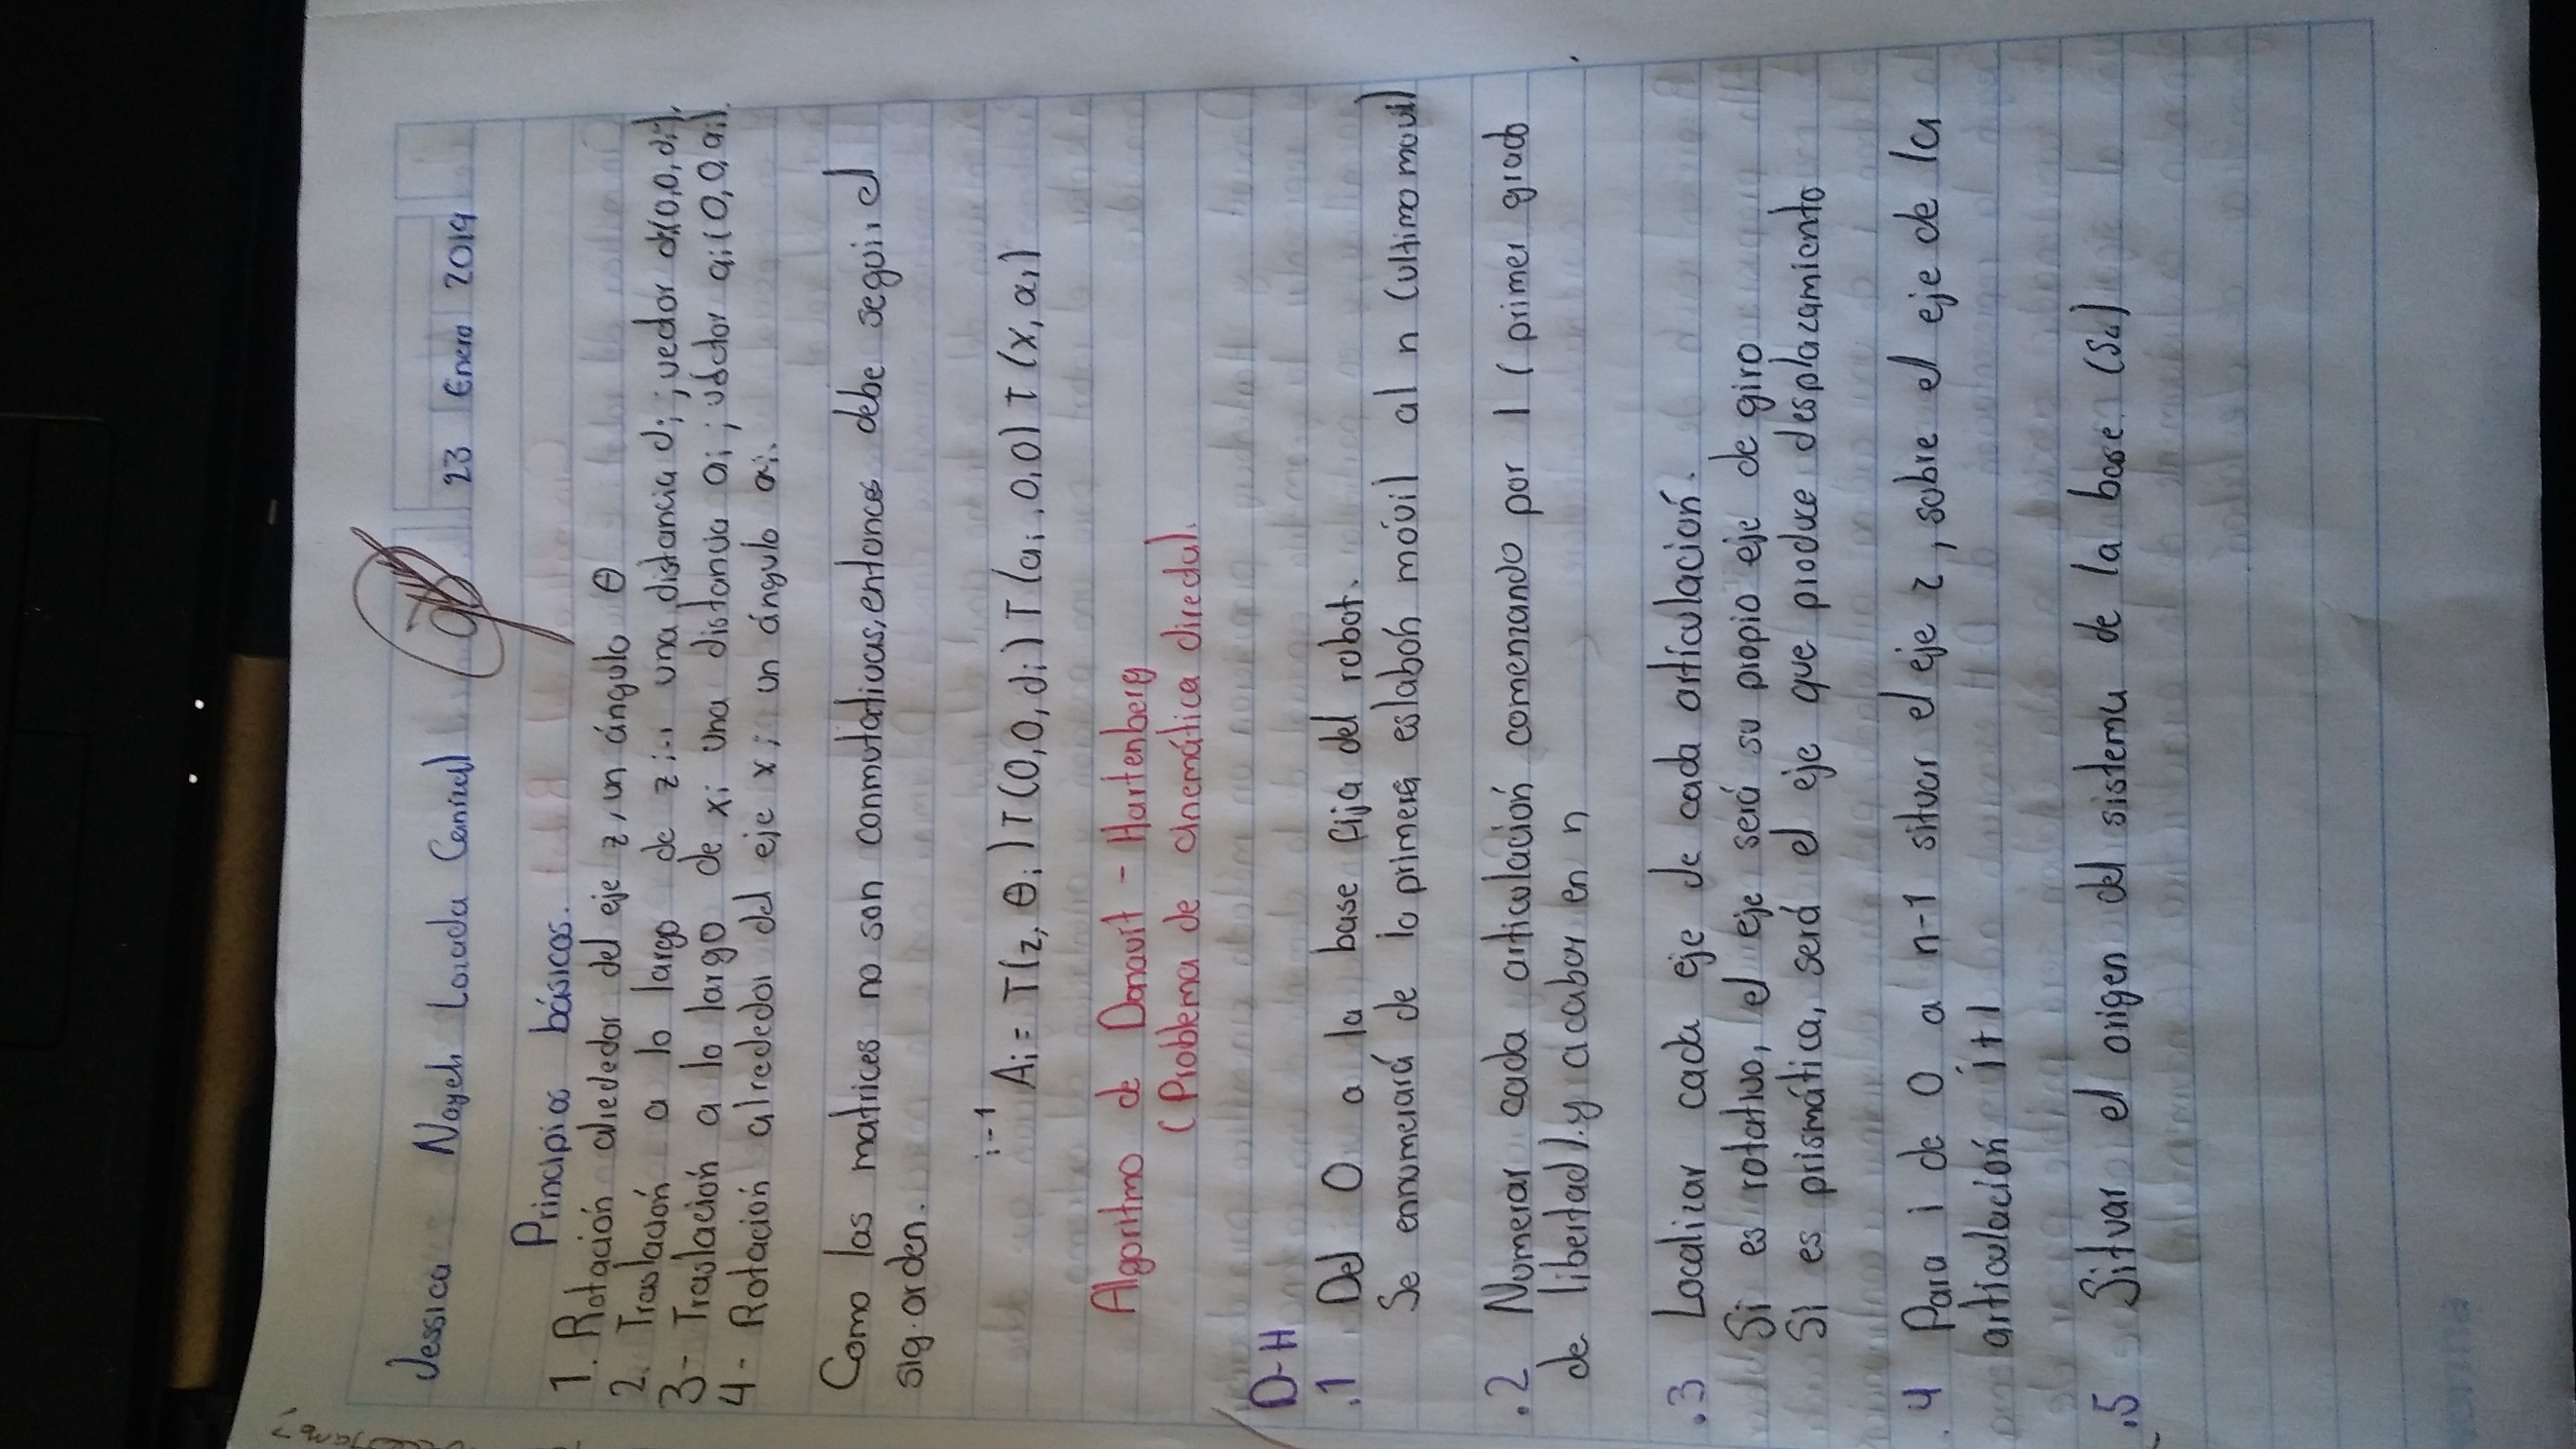 Jessica Nayeli Losada Corral 23 Enero 2019
Principios básicos.
1. Rotación alrededor del eje zi un ángulo θ
2. Traslación a lo largo de zi-1 una distancia di; vector di(0,0,di).
3- Traslación a lo largo de xi una distancia ai; vector ai(0,0,ai).
4- Rotación alrededor del eje xi un ángulo αi.
Como las matrices no son conmutativas, entonces debe seguir el
sig. orden.
i-1 Ai = T(z, θi) T(0,0,di) T(ai,0,0) T(x,αi)
Algoritmo de Danavit - Hartenberg
(Problema de cinemática directa).
D-H
.1 Del 0 a la base fija del robot.
Se ennumerará de la primera eslabón móvil al n (ultimo movil)
.2 Numerar cada articulación comenzando por 1 (primer grado
de libertad). y acabar en n
.3 Localizar cada eje de cada artículación.
Si es rotativo, el eje será su propio eje de giro
Si es prismática, será el eje que produce desplazamiento
.4 Para i de 0 a n-1 situar el eje z, sobre el eje de la
articulación i+1
.5 Situar el origen del sistema de la base
norma